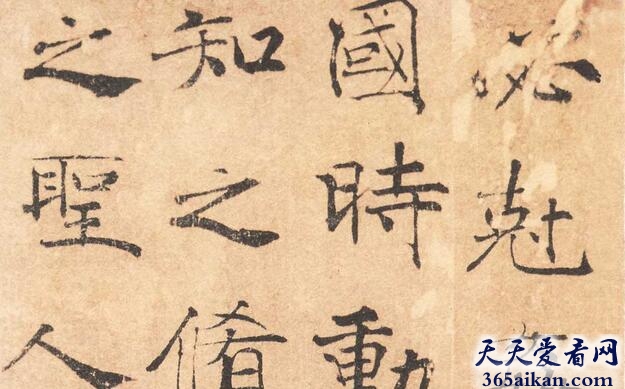 必尅
國時動
知之脩
之聖人
天天爱看网
365aikan.com